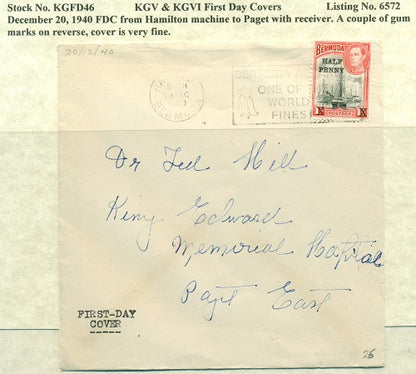 Stock No. KGFD46 KGV & KGVI First Day Covers Listing No. 6572
December 20, 1940 FDC from Hamilton machine to Paget with receiver. A couple of gum
marks on reverse, cover is very fine.
20/12/40
BERMUDA
ONE OF
WORLD
FINEST
BERMUDA
HALF
PENNY
X X
POSTAGE
Dr Ted Hill
King Edward
Memorial Hospital
Paget East
FIRST-DAY
COVER